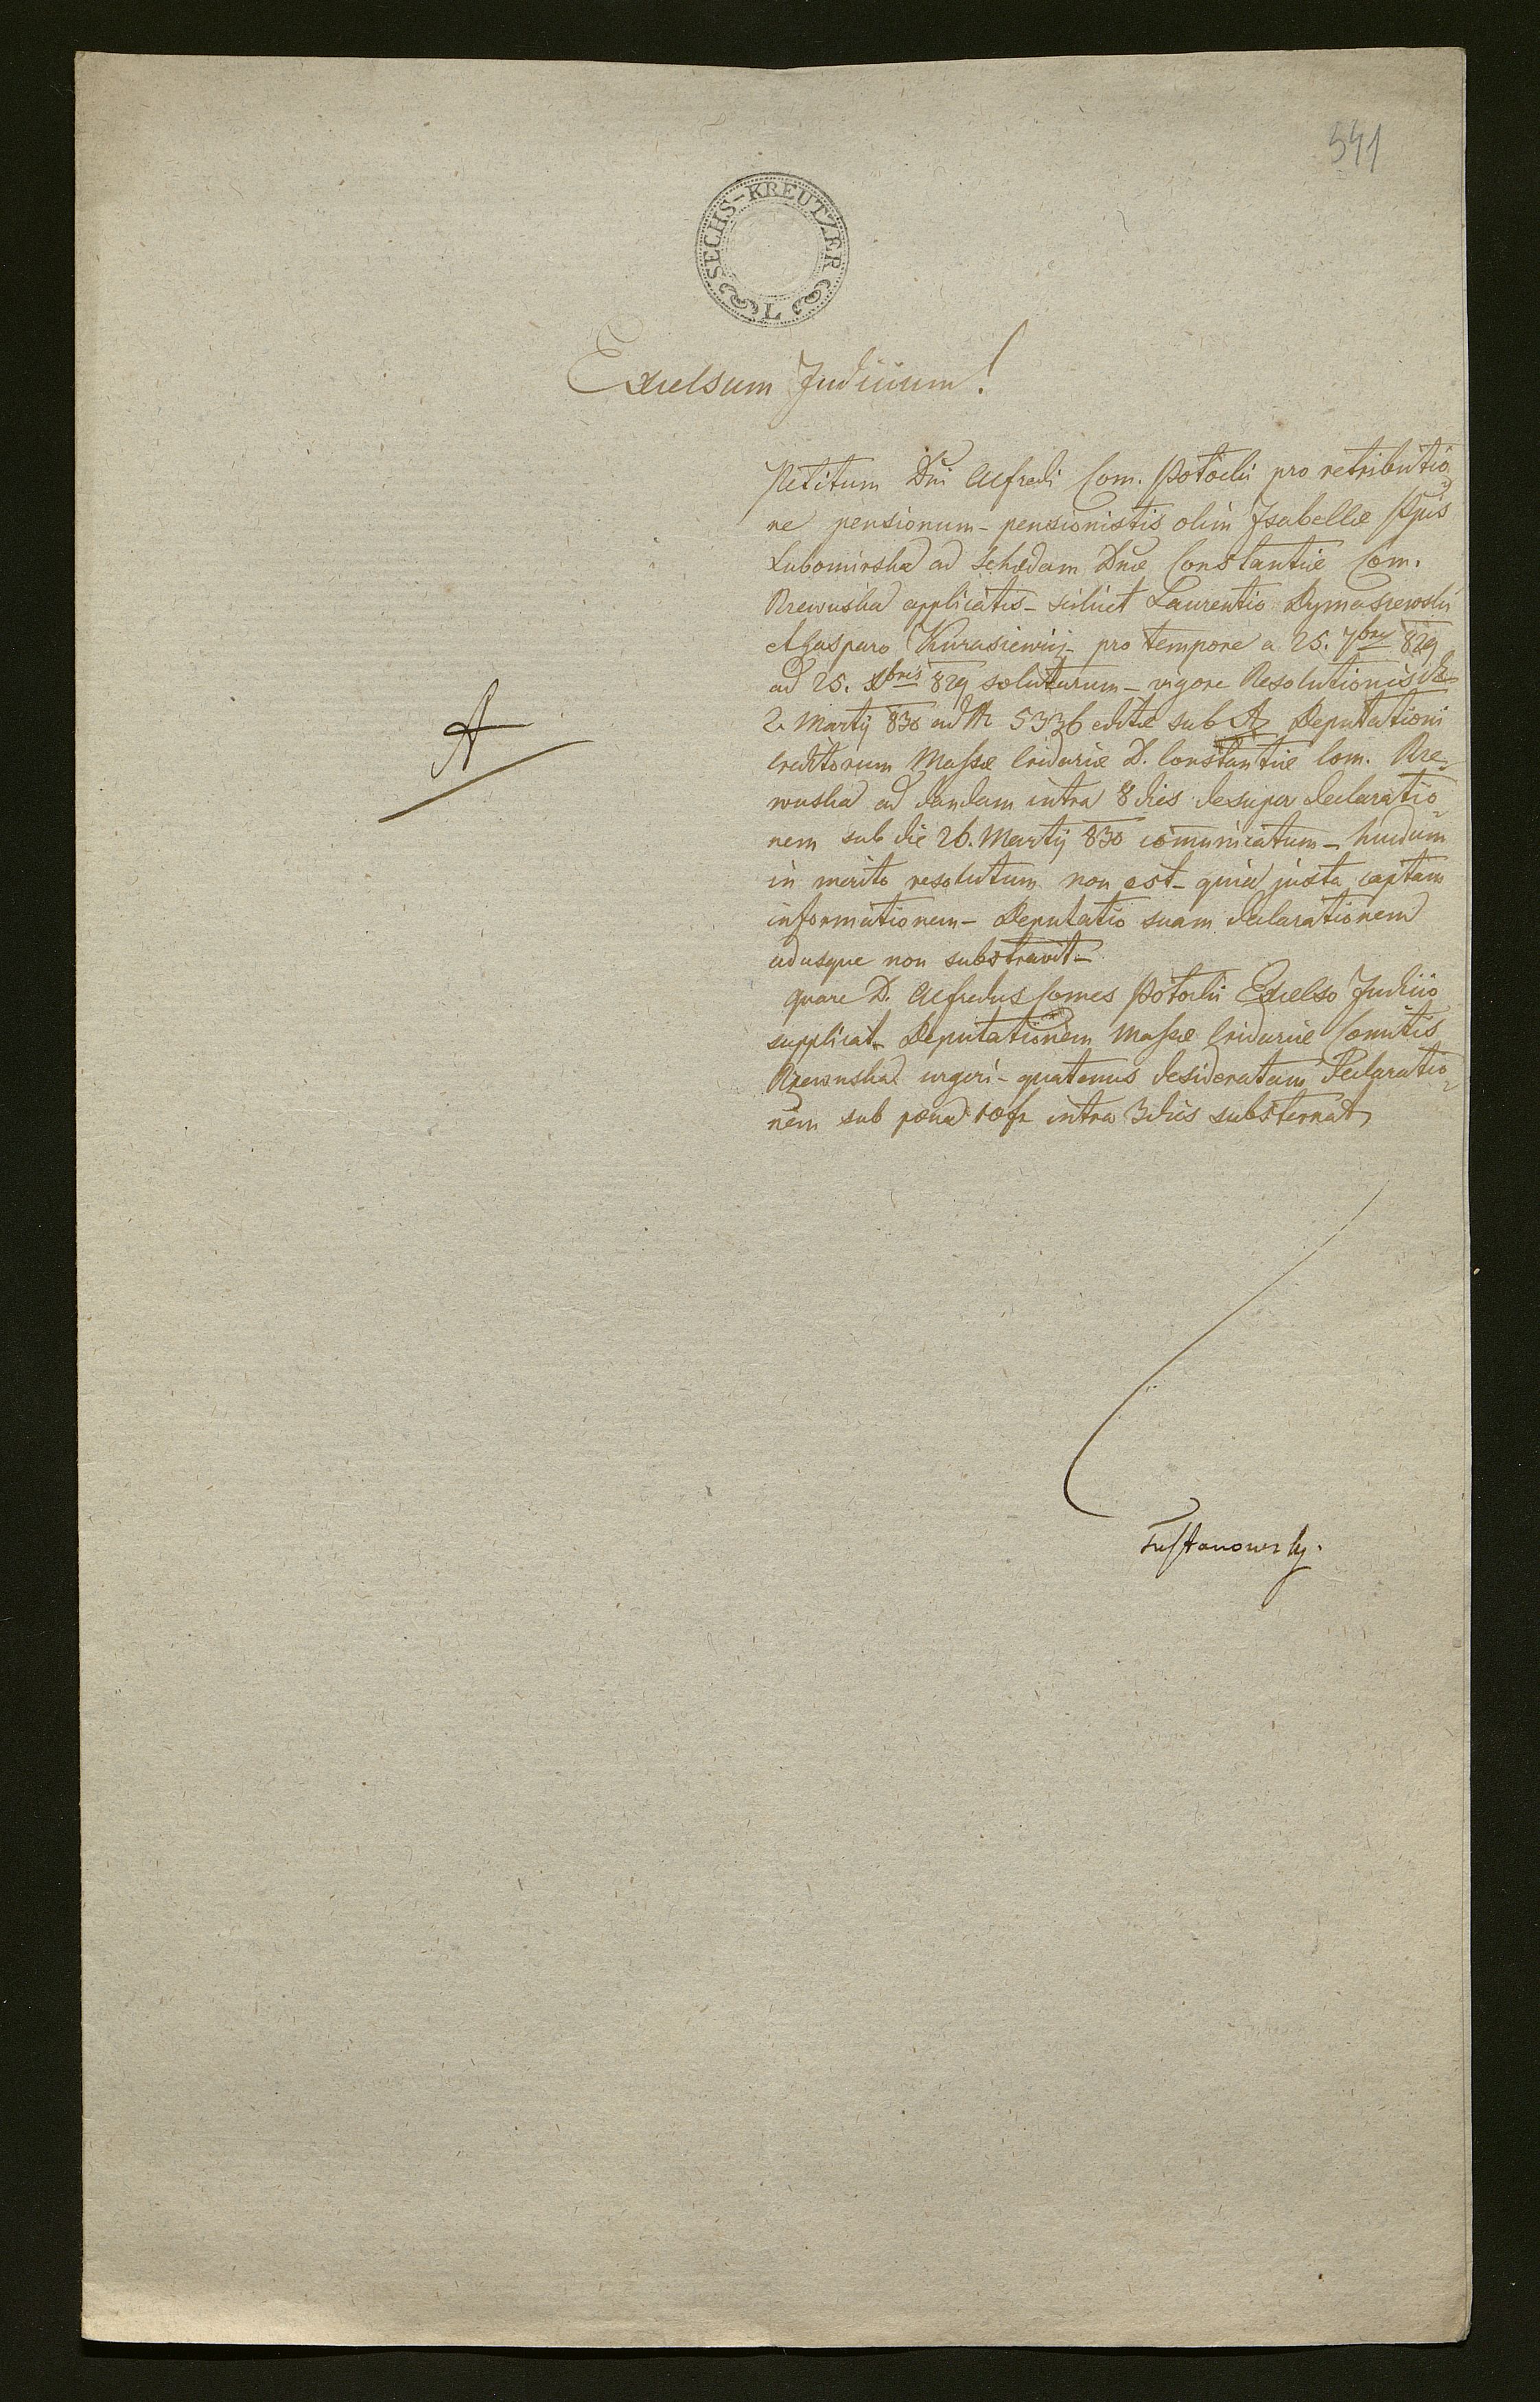 541
SECHS-KREUTZER
L
Excelsum Judicium!
Petitum Dni Alfredi Com. Potocki pro retributio
ne pensionum - pensionistis olim Isabellæ Ppis
Lubomirska ad Schedam Dnæ Constantiæ Com.
Rzewuska applicatis - scilicet Laurentio Dymaszewski
& Gasparo Kurasiewicz - pro tempore a 25. 7bris 829
ad 25. Xbris 829 solutarum - vigore Resolutionis
2 Martij 830 ad N 5336 editæ sub A Deputationi
Creditorum Massæ Cridariæ D. Constantiæ Com. Rze-
wuska ad dandam intra 8 dies desuper declaratio
nem sub die 26. Martij 830 communicatum - hucdum
in merito resolutum non est - quia juxta captam
informationem - Deputatio suam declarationem
adusque non substravit -
A
quare D. Alfredus Comes Potocki Excelso Judicio
supplicat - Deputationem Massæ Cridariæ Comitis
Rzewuska urgeri - quatenus desideratam Declaratio
nem sub poena 10 fr intra 3 dies substernat
Tustanowsky.